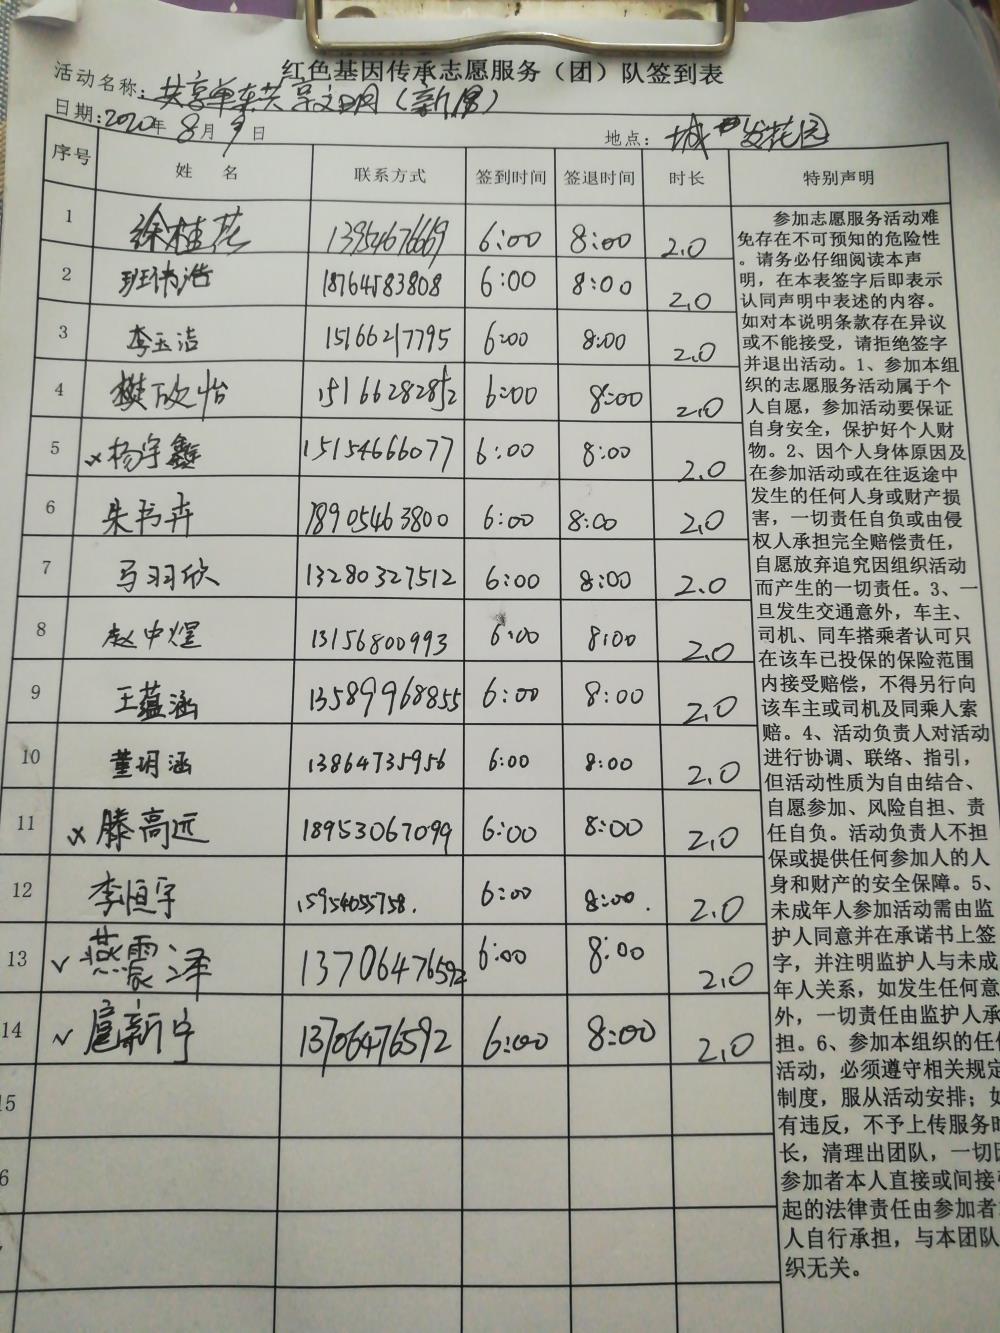 红色基因传承志愿服务（团）队签到表
活动名称：共享单车共享文明（新保）
日期：2020年8月9日 地点：城发花园
序号 姓名 联系方式 签到时间 签退时间 时长 特别声明
1 徐桂花 13954676669 6:00 8:00 2.0
2 班沛浩 18764583808 6:00 8:00 2.0
3 李玉洁 15166217795 6:00 8:00 2.0
4 樊欣怡 15166282852 6:00 8:00 2.0
5 ×杨宇鑫 15154666077 6:00 8:00 2.0
6 朱书卉 18905463800 6:00 8:00 2.0
7 马羽欣 13280327512 6:00 8:00 2.0
8 赵中煜 13156800993 6:00 8:00 2.0
9 王蕴涵 13589968855 6:00 8:00 2.0
10 董玥涵 13864735956 6:00 8:00 2.0
11 ×滕高远 18953067099 6:00 8:00 2.0
12 李恒宇 15954055758. 6:00 8:00. 2.0
13 ✓燕震泽 13706476592 6:00 8:00 2.0
14 ✓扈新宁 13706476592 6:00 8:00 2.0
15
6
参加志愿服务活动难
免存在不可预知的危险性
。请务必仔细阅读本声
明，在本表签字后即表示
认同声明中表述的内容。
如对本说明条款存在异议
或不能接受，请拒绝签字
并退出活动。1、参加本组
织的志愿服务活动属于个
人自愿，参加活动要保证
自身安全，保护好个人财
物。2、因个人身体原因及
在参加活动或在往返途中
发生的任何人身或财产损
害，一切责任自负或由侵
权人承担完全赔偿责任，
自愿放弃追究因组织活动
而产生的一切责任。3、一
旦发生交通意外，车主、
司机、同车搭乘者认可只
在该车已投保的保险范围
内接受赔偿，不得另行向
该车主或司机及同乘人索
赔。4、活动负责人对活动
进行协调、联络、指引，
但活动性质为自由结合、
自愿参加、风险自担、责
任自负。活动负责人不担
保或提供任何参加人的人
身和财产的安全保障。5、
未成年人参加活动需由监
护人同意并在承诺书上签
字，并注明监护人与未成
年人关系，如发生任何意
外，一切责任由监护人承
担。6、参加本组织的任何
活动，必须遵守相关规定
制度，服从活动安排；如
有违反，不予上传服务时
长，清理出团队，一切因
参加者本人直接或间接引
起的法律责任由参加者
人自行承担，与本团队
织无关。